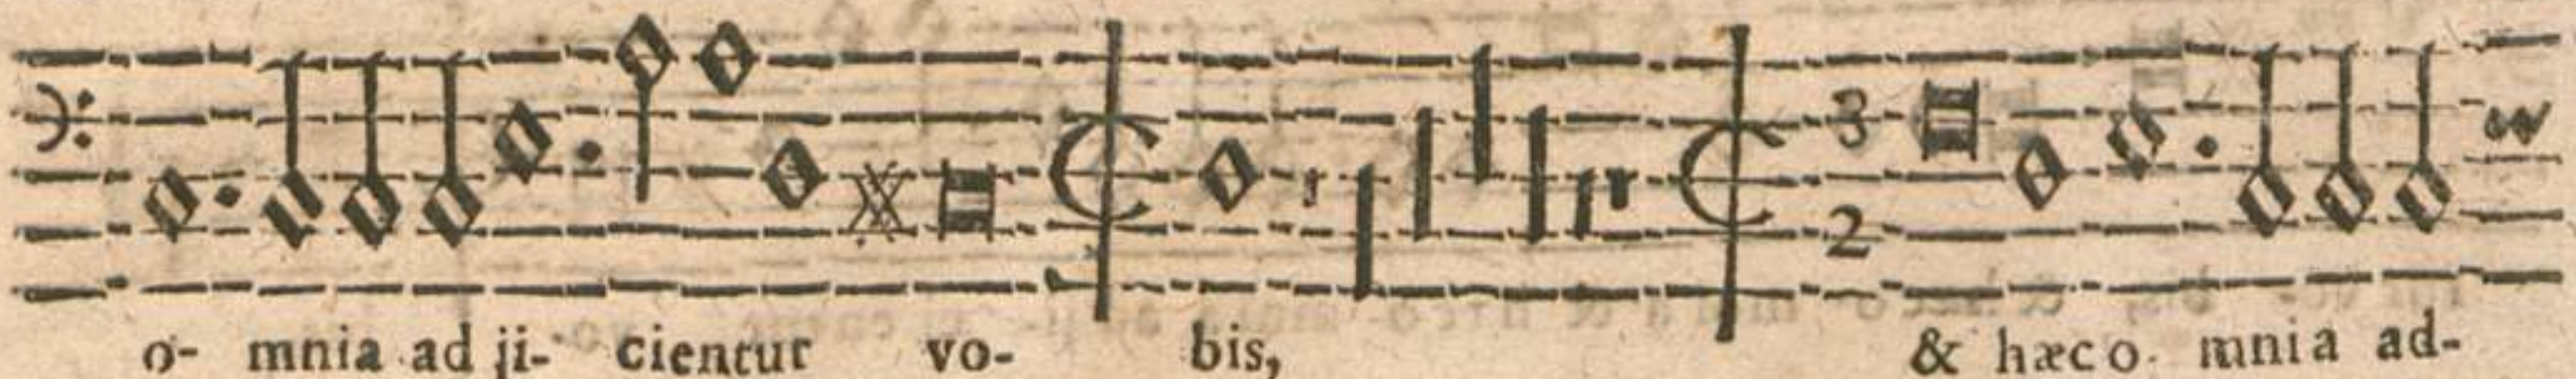 3
2
o- mnia ad ji- cientur vo- bis, & hæc o- mnia ad-